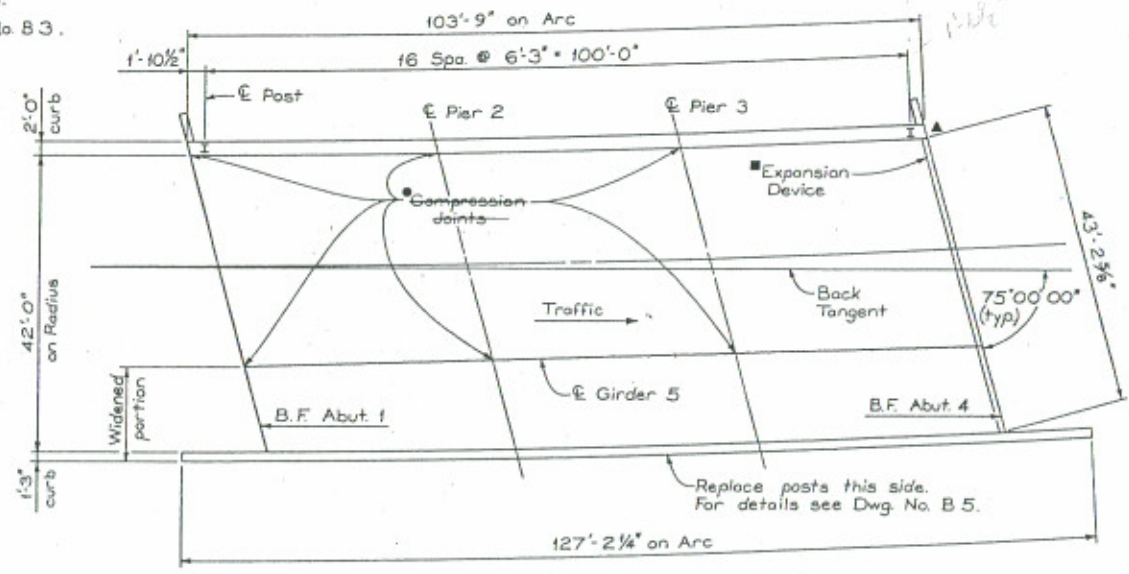 o. B 3.
103'-9" on Arc
1'-10½"
16 Spa. @ 6'-3" = 100'-0"
℄ Post
2'-0"
curb
℄ Pier 2
℄ Pier 3
■Expansion
Device
●Compression
Joints
43'-2⅝"
42'-0"
on Radius
Back
Tangent
75°00'00"
(typ.)
Traffic
Widened
portion
℄ Girder 5
B.F. Abut. 1
B.F. Abut. 4
1'-3"
curb
Replace posts this side.
For details see Dwg. No. B 5.
127'-2¼" on Arc